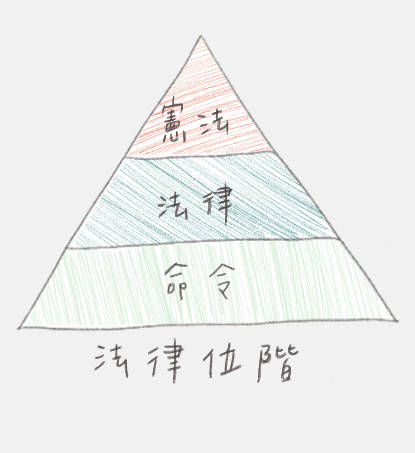 憲法
法律
命令
法律位階